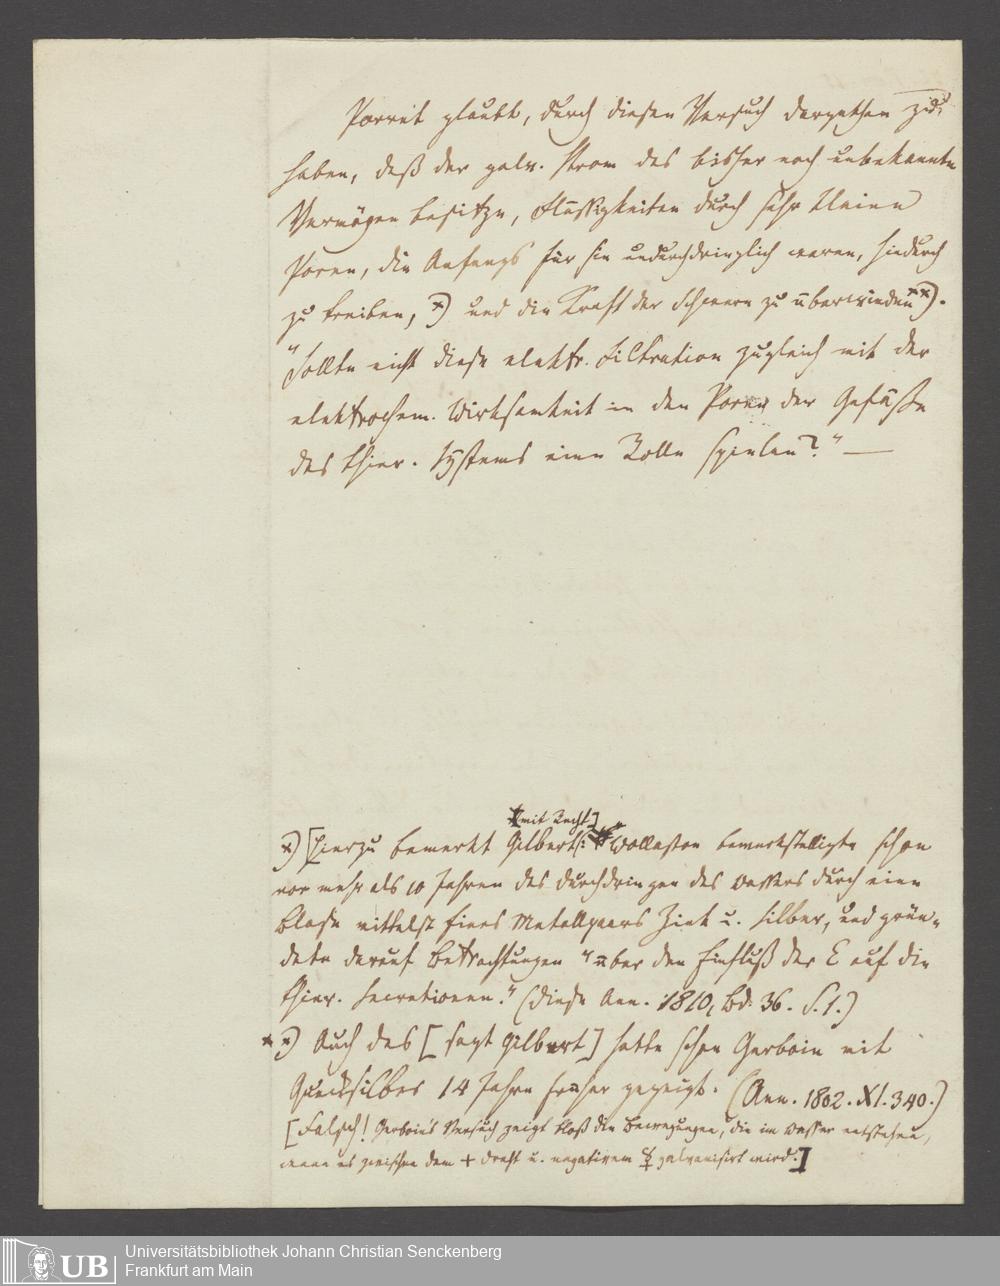 Porret glaubt, durch diesen Versuch dargethan zu
haben, daß der galv. Strom das bisher noch unbekannte
Vermögen besitze, Flüssigkeiten durch sehr kleine
Poren, die Anfangs für sie undurchdringlich waren, hindurch
zu treiben, *) und die Kraft der Schwere zu überwinden **).
"Sollte nicht diese elektr. Filtration zugleich mit der
elektrochem. Wirksamkeit in den Poren der Gefäße
des thier. Systems eine Rolle spielen?" —
[mit Recht]
*) [Hierzu bemerkt Gilbert: Wollaston bewerkstelligte schon
vor mehr als 10 Jahren das Durchdringen des Wassers durch eine
Blase mittelst Eines Metallpaars Zink u. Silber, und grün-
dete darauf Betrachtungen "über den Einfluß der E auf die
thier. Secretionen." (diese Ann. 1810, Bd. 36. S. 1.)
**) Auch das [sagt Gilbert] hatte schon Gerboin mit
Quecksilber 14 Jahre früher gezeigt. (Ann. 1802. XI. 340.)
[Falsch! Gerboin's Versuch zeigt bloß die Bewegungen, die im Wasser entstehen,
wenn es zwischen dem + Draht u. negativem ☿ galvanisirt wird.]
Universitätsbibliothek Johann Christian Senckenberg
Frankfurt am Main
UB